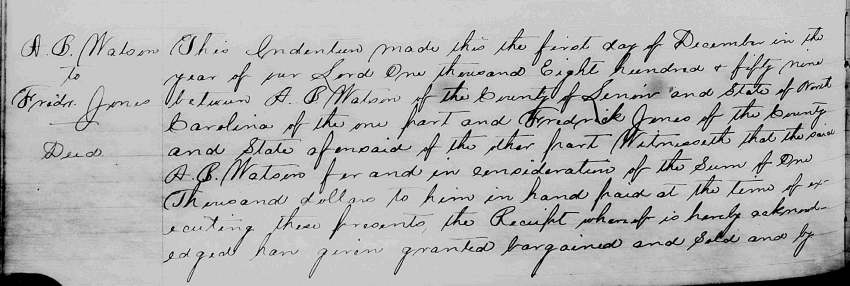 A. B. Watson
to
Fredr. Jones
Deed
This Indenture made this the first day of December in the
year of our Lord One thousand Eight hundred & fifty nine
between A. B Watson of the County of Lenoir and State of North
Carolina of the one part and Fredrick Jones of the County
and State aforesaid of the other part Witnesseth that the said
A. B. Watson for and in consideration of the Sum of One
Thousand dollars to him in hand paid at the time of ex-
ecuting these presents, the Receipt whereof is hereby acknowl-
edged has given granted bargained and Sold and by